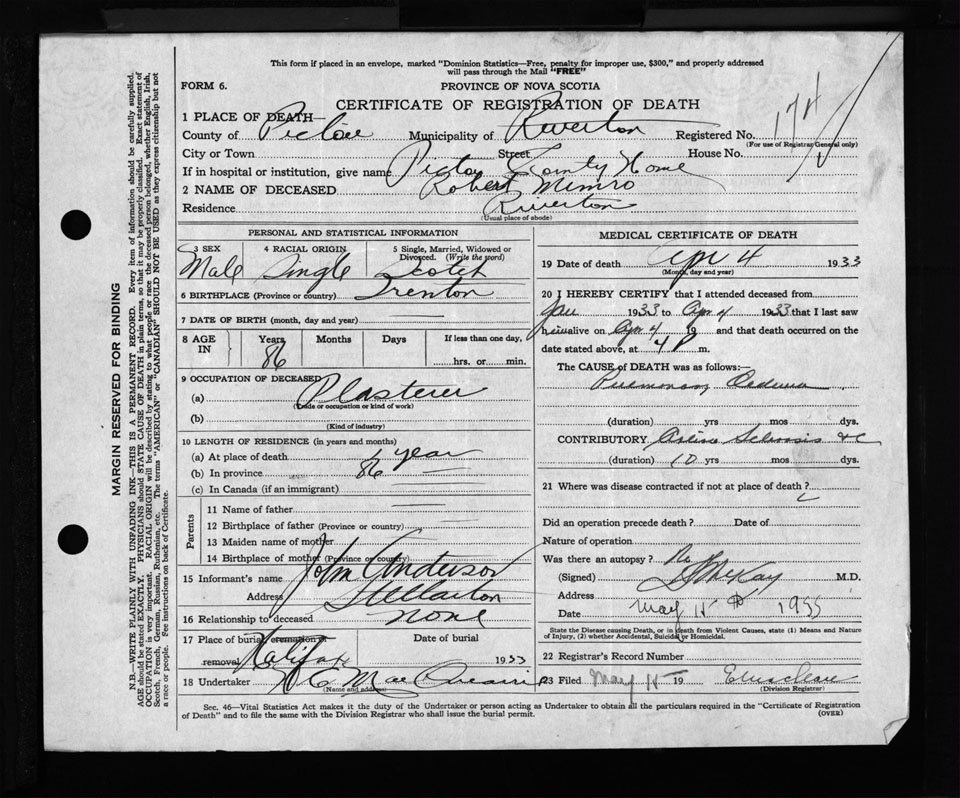 This form if placed in an envelope, marked "Dominion Statistics—Free, penalty for improper use, $300," and properly addressed
will pass through the Mail "FREE"
FORM 6.
PROVINCE OF NOVA SCOTIA
CERTIFICATE OF REGISTRATION OF DEATH
1 PLACE OF DEATH—
County of Pictou Municipality of Riverton Registered No. 174
(For use of Registrar General only)
City or Town Street House No.
If in hospital or institution, give name Pictou County Home
2 NAME OF DECEASED Robert Munro
Residence Riverton
(Usual place of abode)
PERSONAL AND STATISTICAL INFORMATION
3 SEX 4 RACIAL ORIGIN 5 Single, Married, Widowed or
Divorced. (Write the word)
Male Single Scotch
6 BIRTHPLACE (Province or country) Trenton
7 DATE OF BIRTH (month, day and year)
8 AGE IN Years Months Days If less than one day,
86 hrs. or min.
9 OCCUPATION OF DECEASED
(a) Plasterer
(Trade or occupation or kind of work)
(b)
(Kind of industry)
10 LENGTH OF RESIDENCE (in years and months)
(a) At place of death year
(b) In province 86
(c) In Canada (if an immigrant)
Parents
11 Name of father
12 Birthplace of father (Province or country)
13 Maiden name of mother
14 Birthplace of mother (Province or country)
15 Informant's name John Anderson
Address Stellarton
16 Relationship to deceased none
17 Place of burial cremation or Date of burial
removal Halifax 1933
18 Undertaker
(Name and address)
MEDICAL CERTIFICATE OF DEATH
19 Date of death Apr 4 1933
(Month, day and year)
20 I HEREBY CERTIFY that I attended deceased from
Jan 1933 to Apr 4 1933 that I last saw
h alive on Apr 4 19 and that death occurred on
date stated above, at 4 P m.
The CAUSE of DEATH was as follows:—
Pulmonary Oedema
(duration) yrs mos dys.
CONTRIBUTORY Sclerosis &c
(duration) 10 yrs mos dys.
21 Where was disease contracted if not at place of death?
Did an operation precede death? Date of
Nature of operation
Was there an autopsy? No
(Signed) McKay M.D.
Address
Date May
State the Disease causing Death, or in death from Violent Causes, state (1) Means and Nature
of Injury, (2) whether Accidental, Suicidal or Homicidal.
22 Registrar's Record Number
23 Filed May 19
(Division Registrar)
Sec. 46—Vital Statistics Act makes it the duty of the Undertaker or person acting as Undertaker to obtain all the particulars required in the "Certificate of Registration
of Death" and to file the same with the Division Registrar who shall issue the burial permit. (OVER)
MARGIN RESERVED FOR BINDING
N.B.—WRITE PLAINLY WITH UNFADING INK—THIS IS A PERMANENT RECORD. Every item of information should be carefully supplied.
AGE should be stated EXACTLY. PHYSICIANS should STATE CAUSE OF DEATH in plain terms, so that it may be properly classified. Exact statement of
OCCUPATION is very important. RACIAL ORIGIN will be described by stating to what people or race the deceased person belonged, whether English, Irish,
Scotch, French, German, Russian, Ruthenian, etc. The terms "AMERICAN" or "CANADIAN" SHOULD NOT BE USED as they express citizenship but not
a race or people. See instructions on back of Certificate.